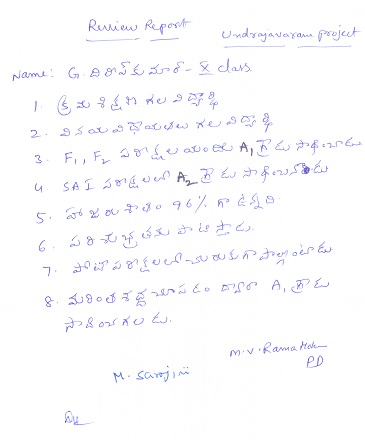 Review Report
Undrajavaram project
Name: G. దిలీప్ కుమార్ - X class
1. క్రమశిక్షణ గల విద్యార్థి
2. వినయవిధేయతలు గల విద్యార్థి
3. F1, F2 పరీక్షలయందు A1 గ్రేడు సాధించాడు
4 SA I పరీక్షలలో A2 గ్రేడు సాధించాడు
5. హాజరుశాతం 96% గా ఉన్నది
6. పరిశుభ్రతను పాటిస్తాడు.
7. పోటీపరీక్షలలో చురుకుగా పాల్గొంటాడు
8. మరింత శ్రద్ధ చూపడం ద్వారా A1 గ్రేడు
సాధించగలడు.
M.V. Rama
PD
M. Sarojini